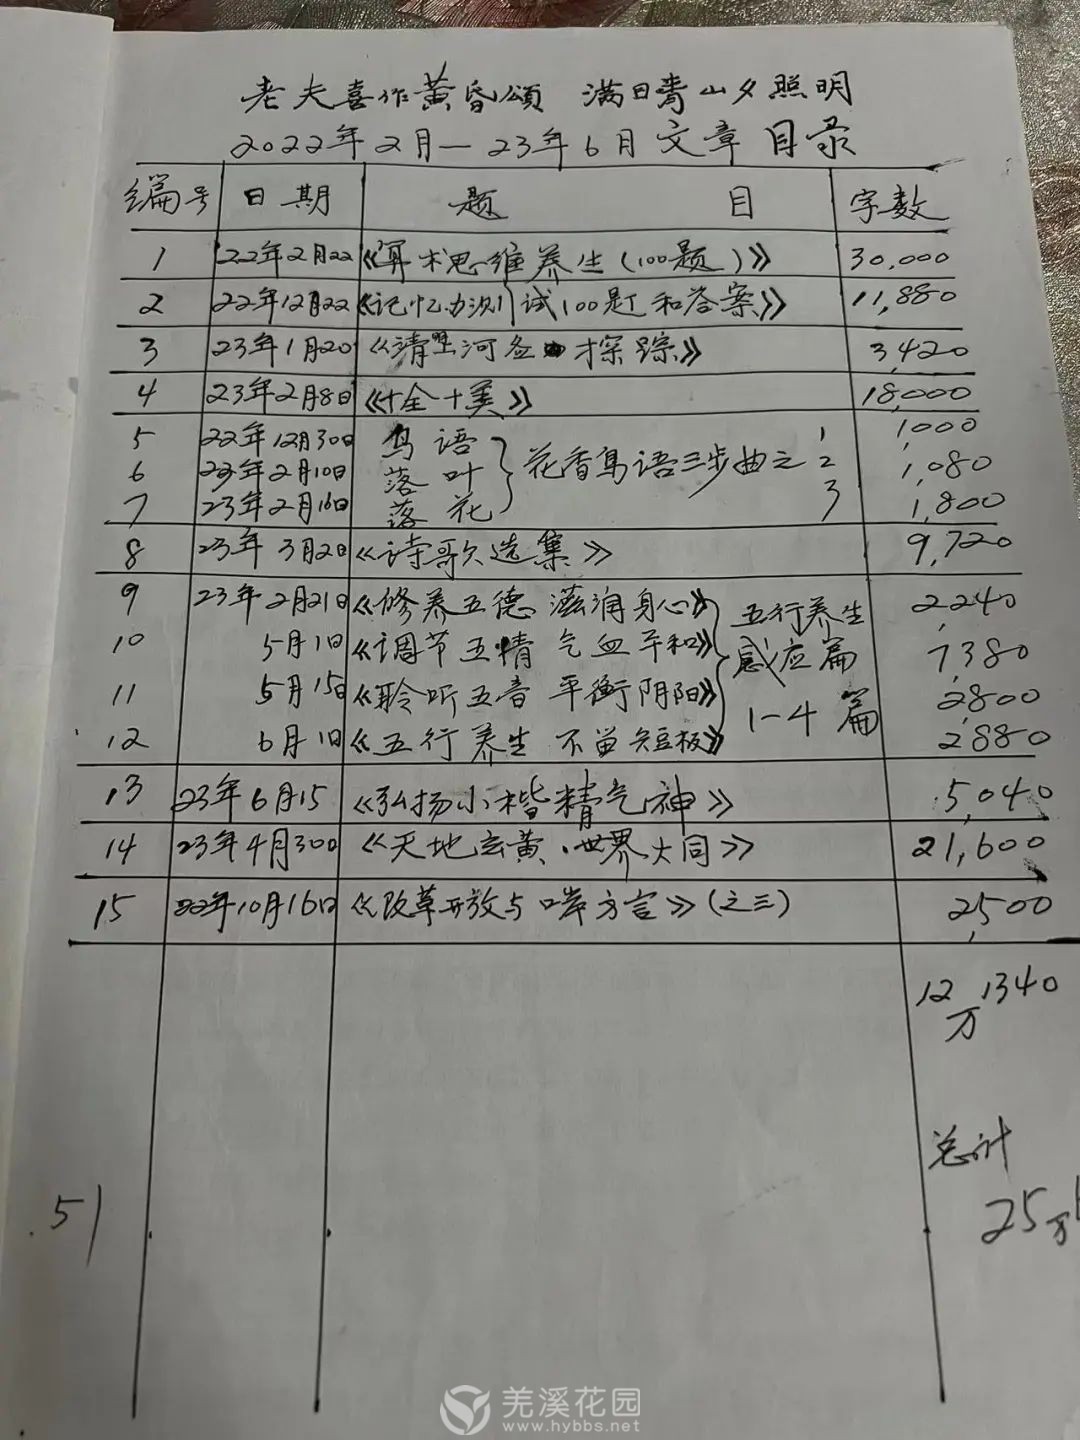 老夫喜作黄昏頌 满目青山夕照明
2022年2月—23年6月文章目录
编号 日期 题 目 字数
1 22年2月22 《算术思维养生(100题)》 30,000
2 22年12月22 《记忆力测试100题和答案》 11,880
3 23年1月20 《清 河 探踪》 3,420
4 23年2月8日 《十全十美》 18,000
5 22年12月30日 鸟语 1 1,000
6 23年2月10日 落叶 花香鸟语三步曲之 2 1,080
7 23年2月16日 落花 3 1,800
8 23年3月2日 《诗歌选集》 9,720
9 23年2月21日 《修养五德 滋润身心》 五行养生 2,240
10 5月1日 《调节五情 气血平和》 感应篇 7,380
11 5月15日 《聆听五音 平衡阴阳》 1-4篇 2,800
12 6月1日 《五行养生 不留短板》 2880
13 23年6月15 《弘扬小楷精气神》 5,040
14 23年4月30日 《天地玄黄·世界大同》 21,600
15 22年10月16日 《改革开放与 方言》(之三) 2,500
12万1340
总计
25万
51
羌溪花园
www.hybbs.net